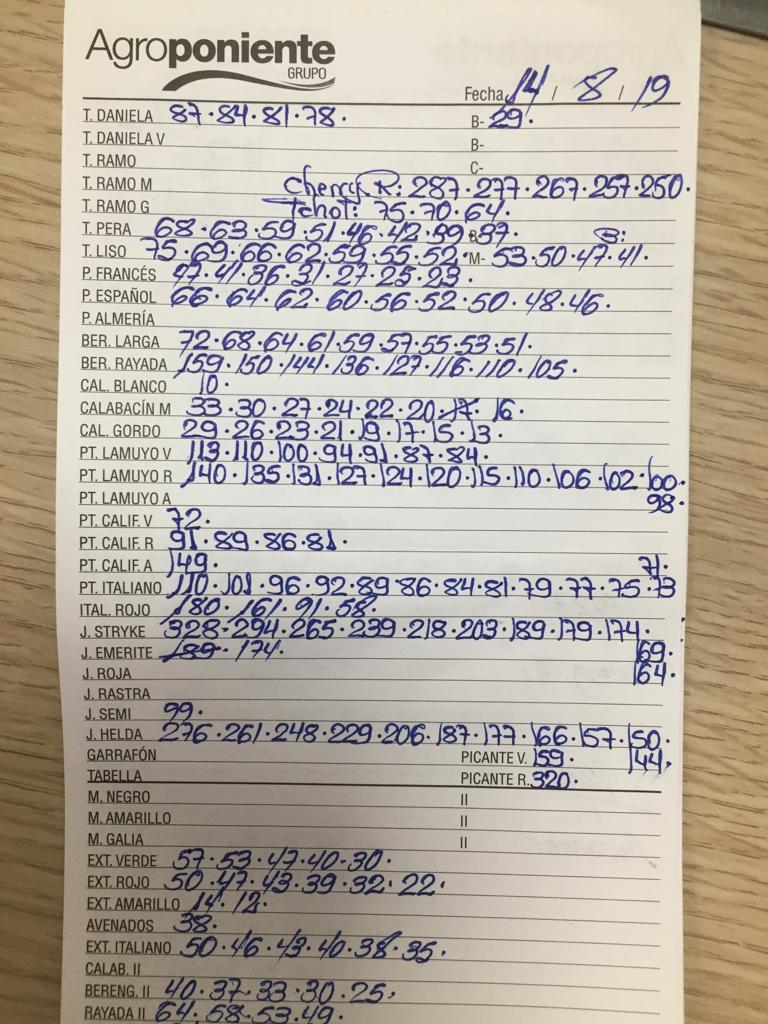 Agroponiente
GRUPO
Fecha 14 / 8 / 19
T. DANIELA 87·84·81·78· B- 29·
T. DANIELA V B-
T. RAMO C-
T. RAMO M Cherry R: 287·277·267·257·250·
T. RAMO G Tchot: 75·70·64·
T. PERA 68·63·59·51·46·42·39·37· B:
T. LISO 75·69·66·62·59·55·52· M- 53·50·47·41·
P. FRANCÉS 47·41·36·31·27·25·23·
P. ESPAÑOL 66·64·62·60·56·52·50·48·46·
P. ALMERÍA
BER. LARGA 72·68·64·61·59·57·55·53·51·
BER. RAYADA 159·150·144·136·127·116·110·105·
CAL. BLANCO 10·
CALABACÍN M 33·30·27·24·22·20·17·16·
CAL. GORDO 29·26·23·21·19·17·15·13·
PT. LAMUYO V 113·110·100·94·91·87·84·
PT. LAMUYO R 140·135·131·127·124·120·115·110·106·102·100·
PT. LAMUYO A 98·
PT. CALIF. V 72·
PT. CALIF. R 91·89·86·81·
PT. CALIF. A 149· 71·
PT. ITALIANO 110·101·96·92·89·86·84·81·79·77·75·73
ITAL. ROJO 180·161·91·58·
J. STRYKE 328·294·265·239·218·203·189·179·174·
J. EMERITE 189·174· 169·
J. ROJA 164·
J. RASTRA
J. SEMI 99·
J. HELDA 276·261·248·229·206·187·177·166·157·150·
GARRAFÓN PICANTE V. 159· 144·
TABELLA PICANTE R. 320·
M. NEGRO II
M. AMARILLO II
M. GALIA II
EXT. VERDE 57·53·47·40·30·
EXT. ROJO 50·47·43·39·32·22·
EXT. AMARILLO 14·12·
AVENADOS 38·
EXT. ITALIANO 50·46·43·40·38·35·
CALAB. II
BERENG. II 40·37·33·30·25·
RAYADA II 64·58·53·49·